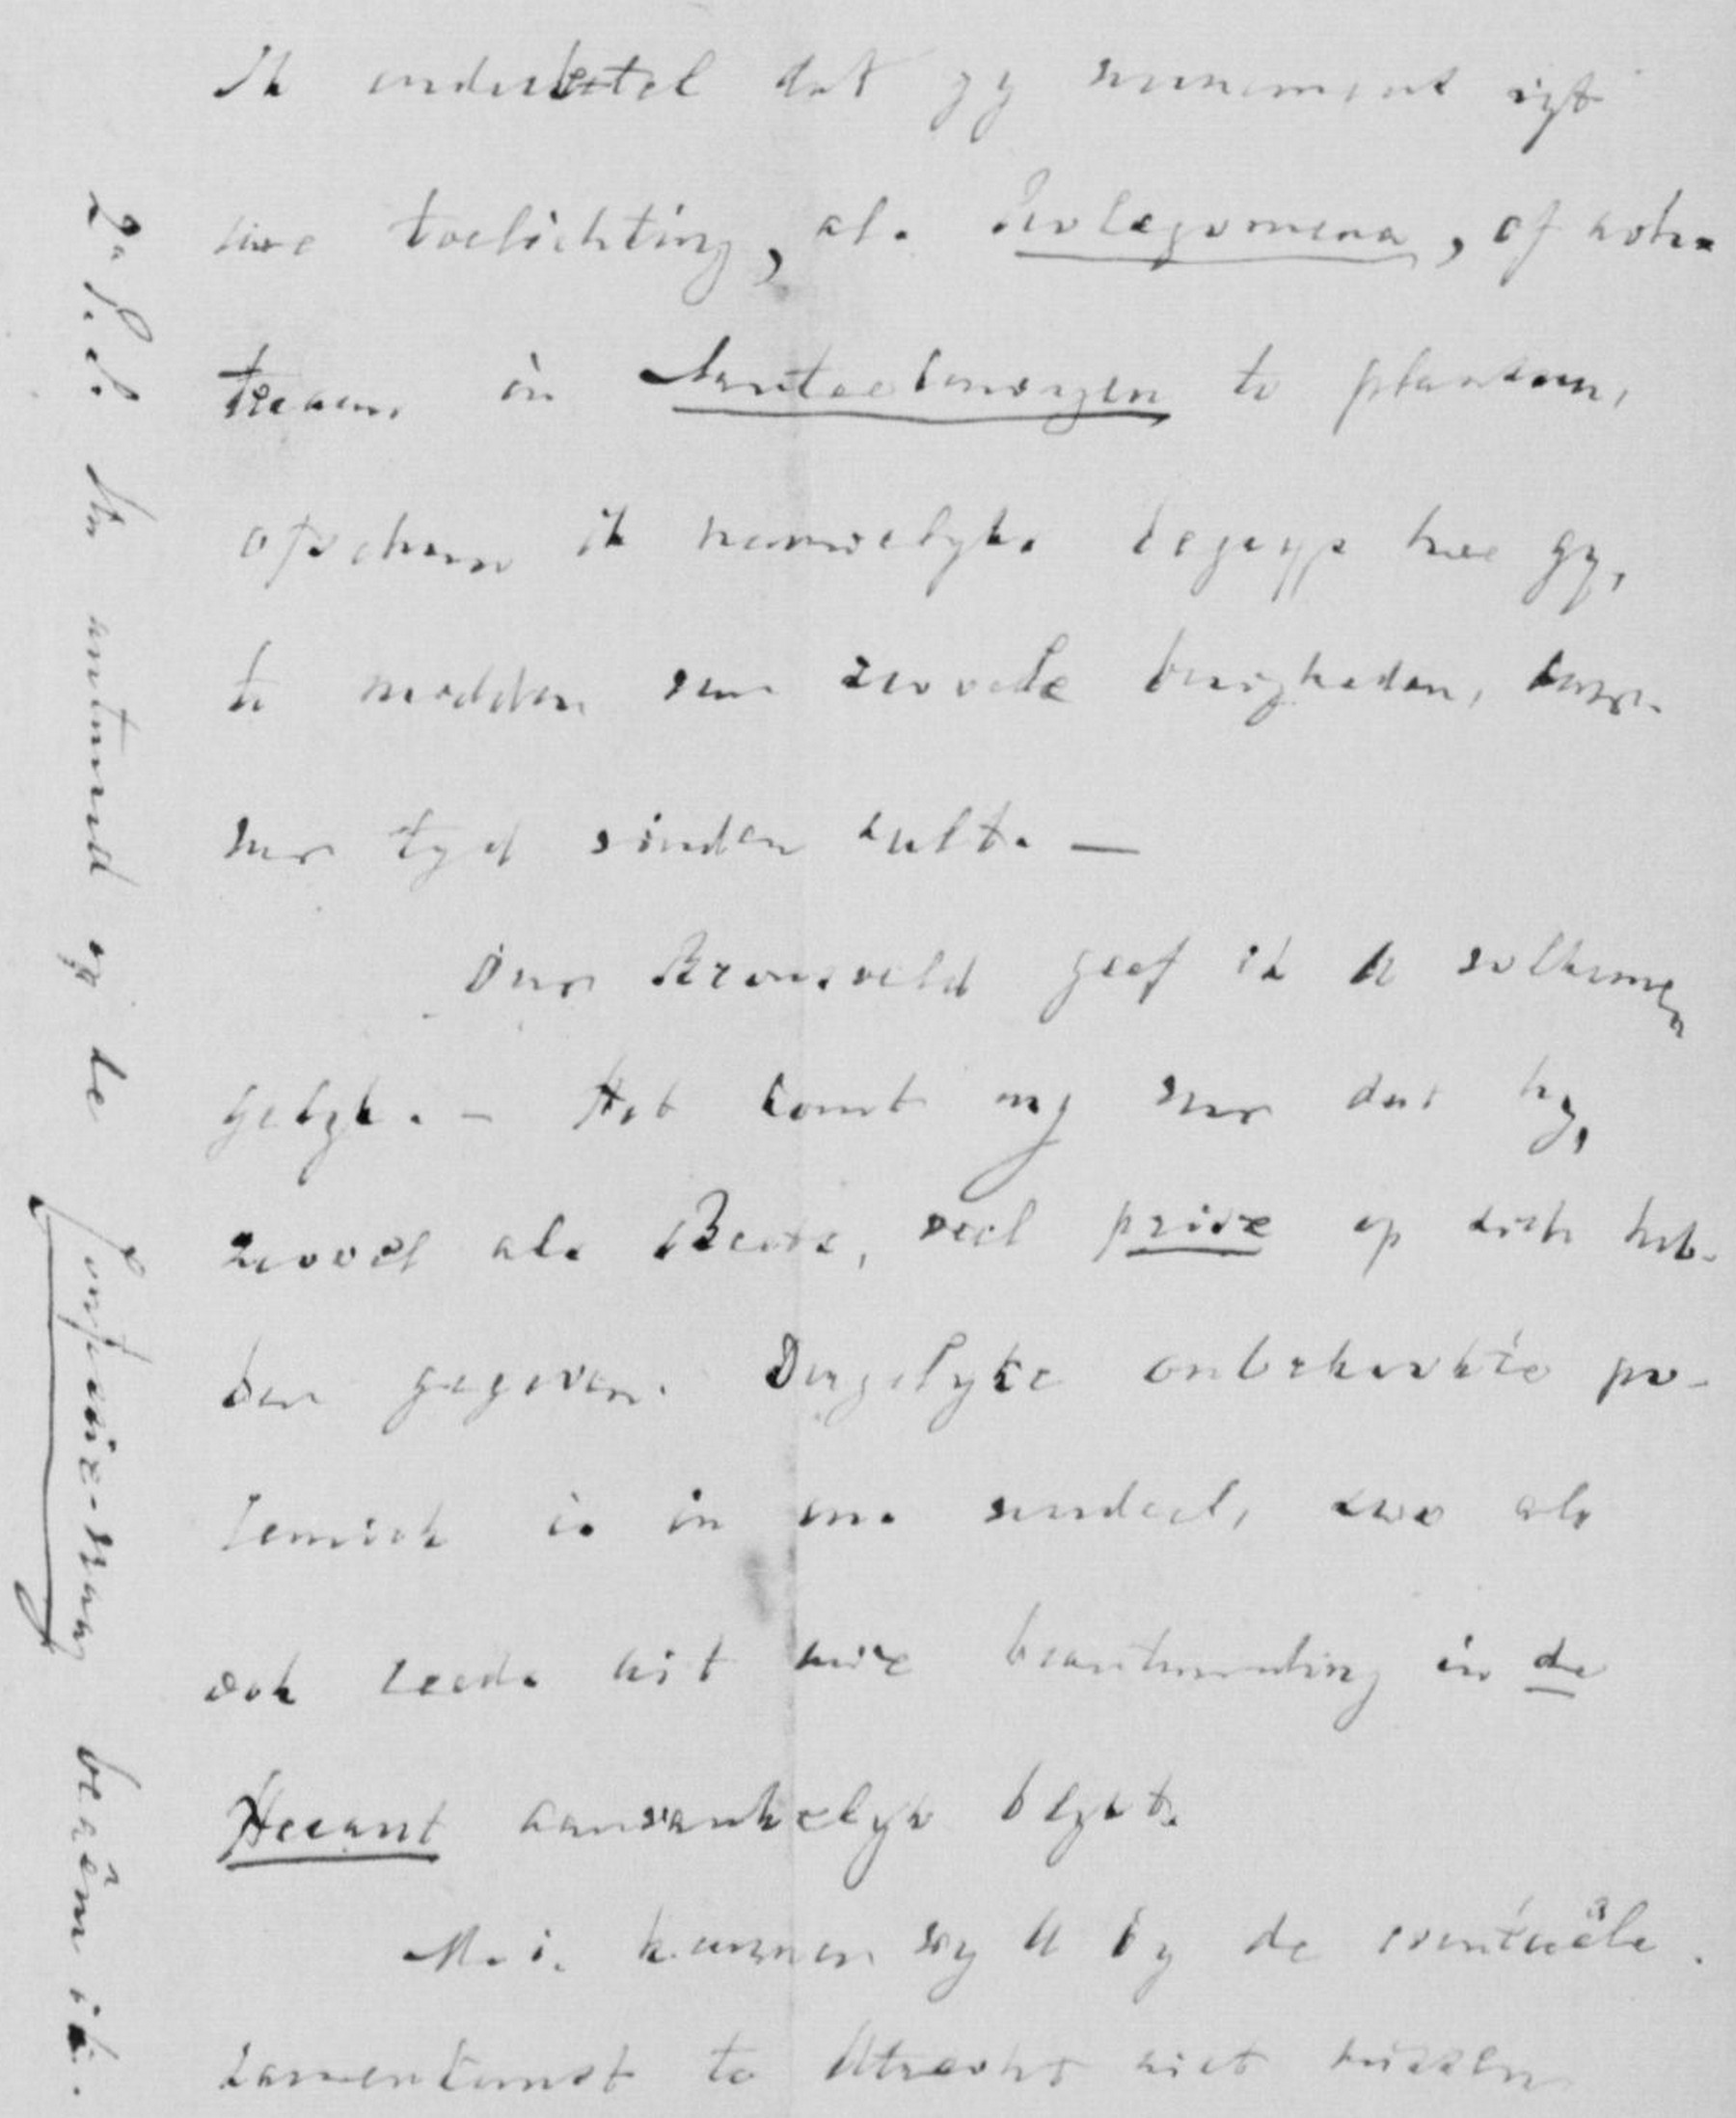 Ik onderstel dat gy voornemens zyt
uwe toelichting, als Prolegomena, of achter
in Aanteekeningen te plaatsen,
ofschoon ik nauwelyks begryp hoe gy,
te midden van zoovele bezigheden, daar-
voor tyd vinden zult. —
Over Bronsveld geef ik U volkomen
gelyk. — Het komt my voor dat hy,
zoowel als Beets, veel prise op zich heb-
ben gegeven. Dergelyke onbekookte po-
lemiek is in ons nadeel, zoo als
ook reeds uit uwe beantwoording in de
Heraut aanvankelyk blykt.
M. i. kunnen wy U by de eventuële
zamenkomst te Utrecht niet missen
Uw antwoord op de Confessie-vraag beäem ik.